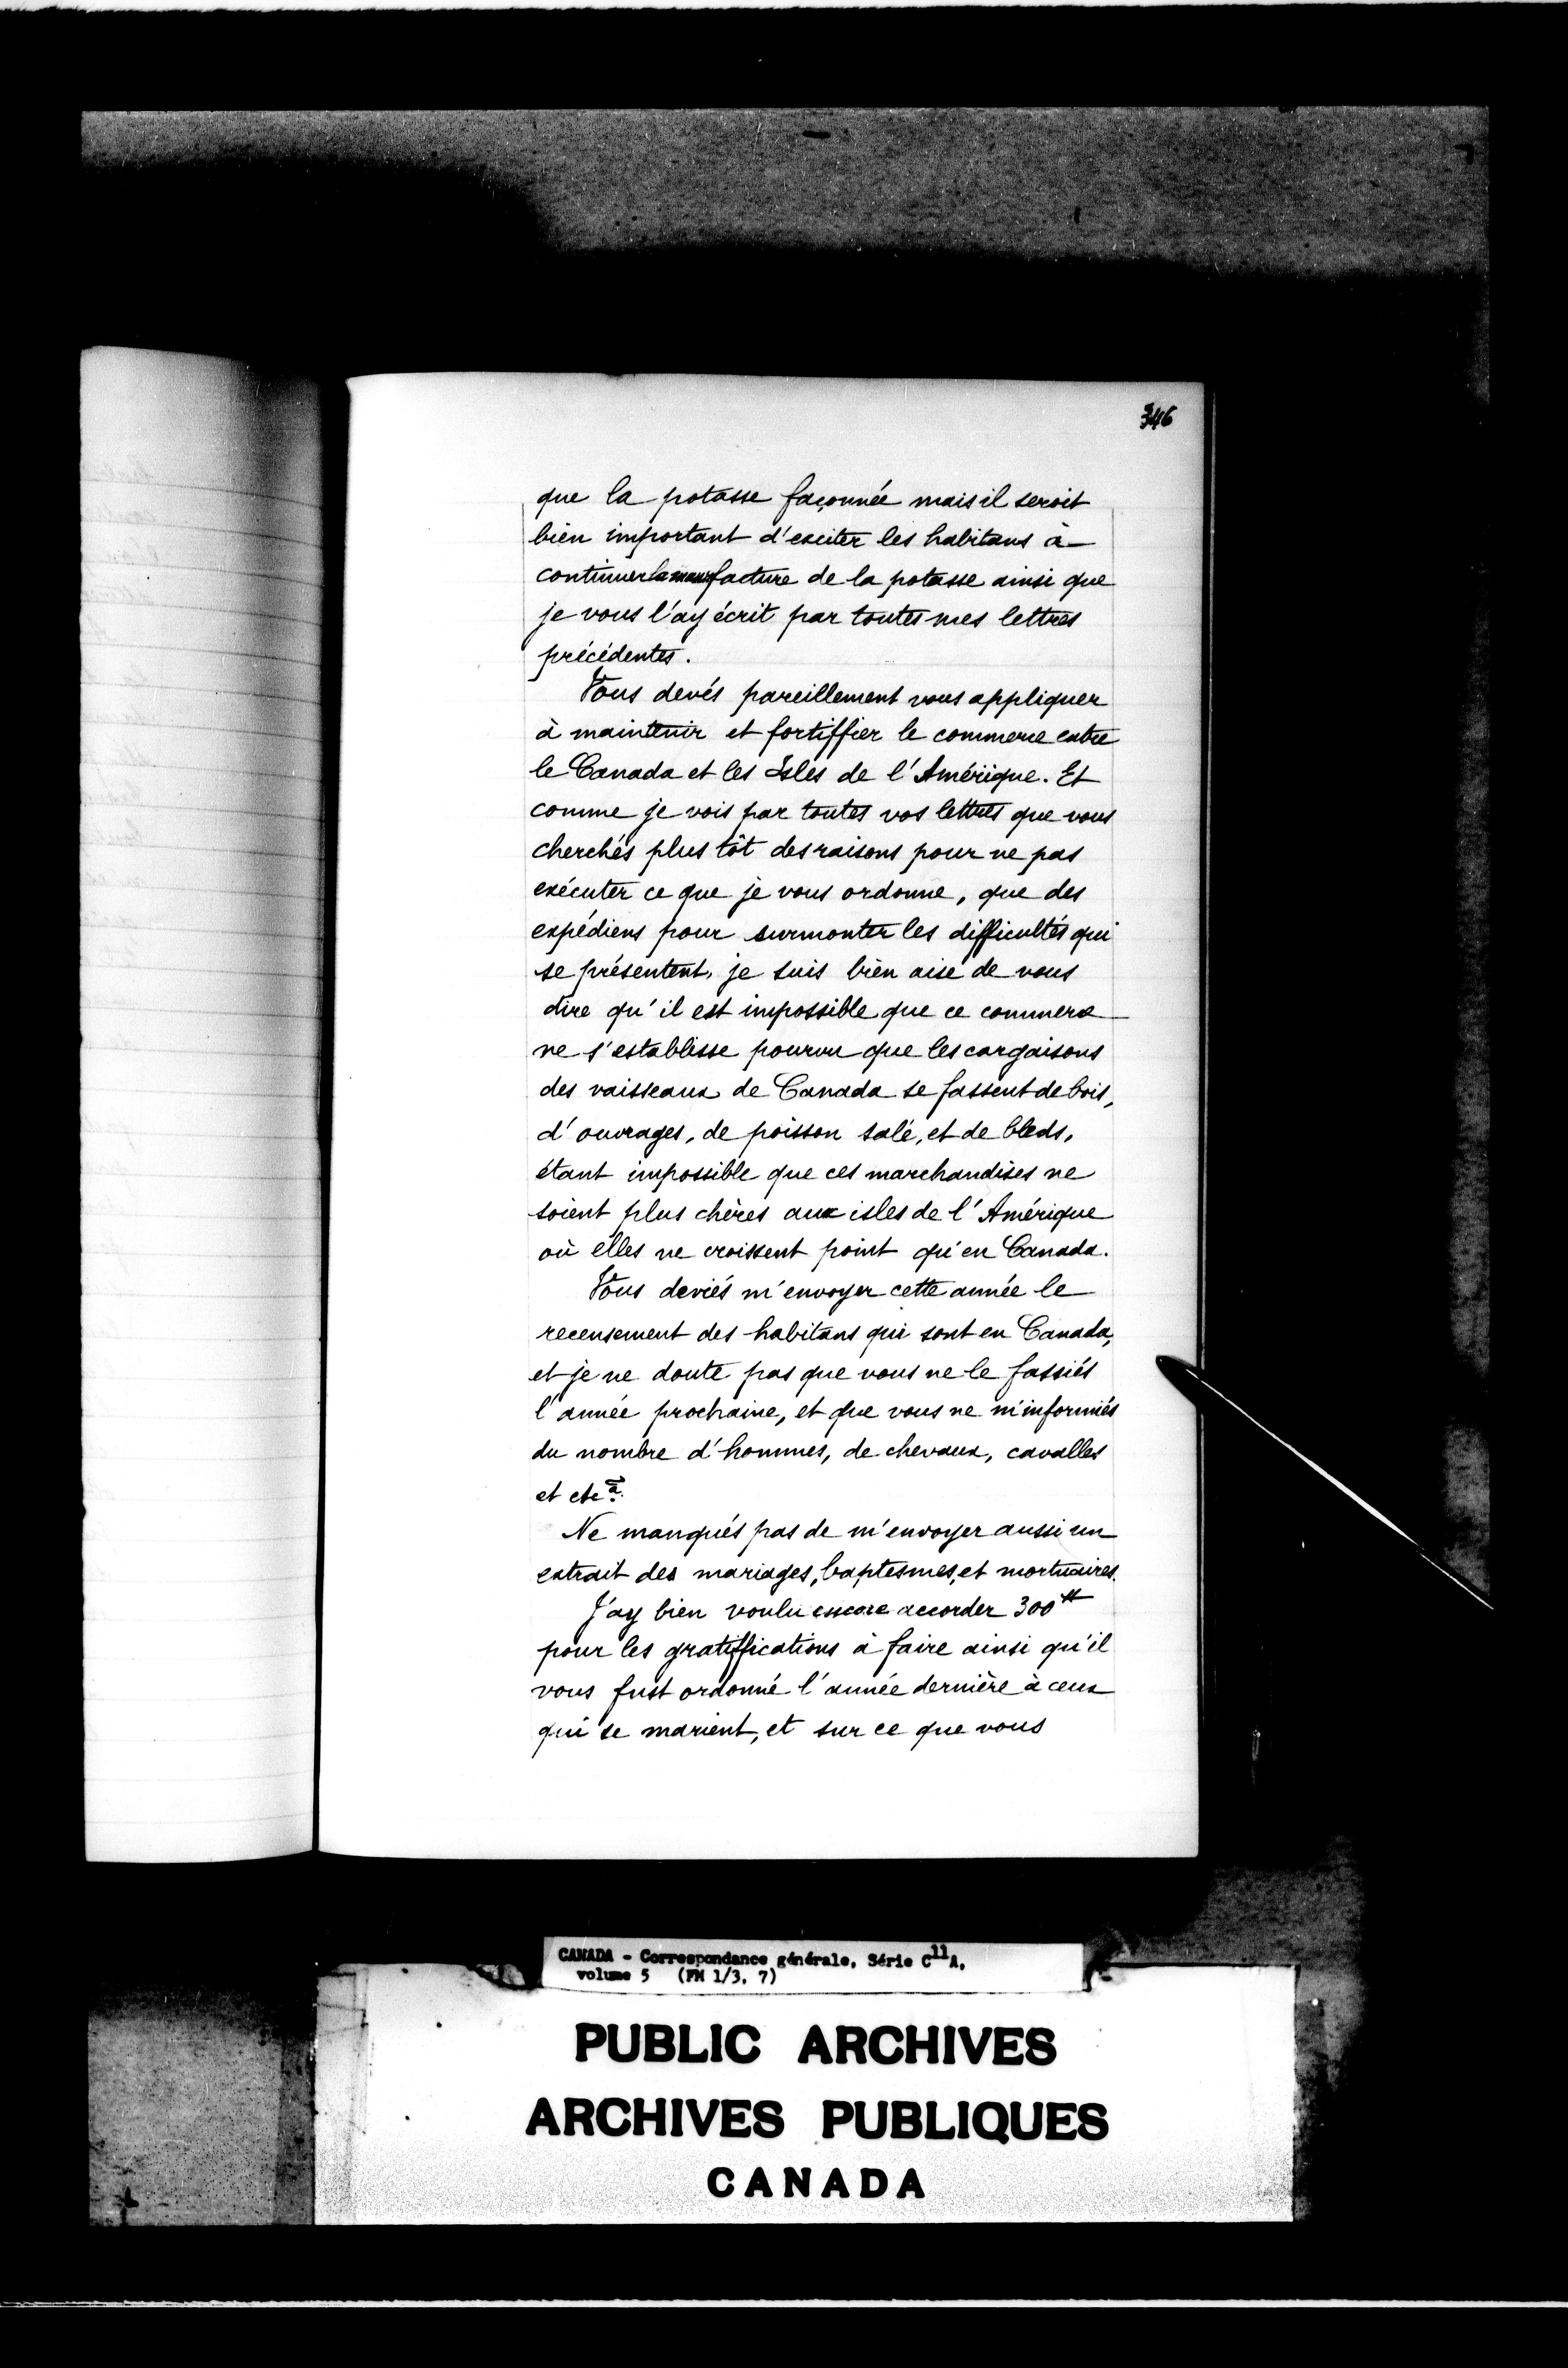 346
que la potasse façonnée mais il seroit
bien important d'exciter les habitans à
continuer la manufacture de la potasse ainsi que
je vous l'ay écrit par toutes mes lettres
précédentes.
Vous devés pareillement vous appliquer
à maintenir et fortiffier le commerce entre
le Canada et les Isles de l'Amérique. Et
comme je vois par toutes vos lettres que vous
cherchés plus tôt des raisons pour ne pas
exécuter ce que je vous ordonne, que des
expédiens pour surmonter les difficultés qui
se présentent, je suis bien aise de vous
dire qu'il est impossible que ce commerce
ne s'establisse pourvu que les cargaisons
des vaisseaux de Canada se fassent de bois,
d'ouvrages, de poisson salé, et de bleds,
étant impossible que ces marchandises ne
soient plus chères aux isles de l'Amérique
où elles ne croissent point qu'en Canada.
Vous deviés m'envoyer cette année le
recensement des habitans qui sont en Canada,
et je ne doute pas que vous ne le fassiés
l'année prochaine, et que vous ne m'informiés
du nombre d'hommes, de chevaux, cavalles
et etc.a
Ne manqués pas de m'envoyer aussi un
extrait des mariages, baptesmes, et mortuaires.
J'ay bien voulu encore accorder 300tt
pour les gratiffications à faire ainsi qu'il
vous fust ordonné l'année dernière à ceux
qui se marient, et sur ce que vous
CANADA - Correspondance générale, Série C11A,
volume 5 (FM 1/3, 7)
PUBLIC ARCHIVES
ARCHIVES PUBLIQUES
CANADA